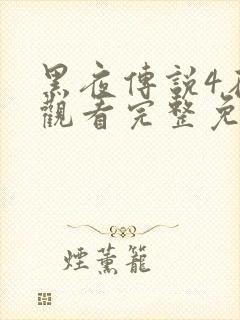 黑夜傳說4
觀看完整免
煙薰籠